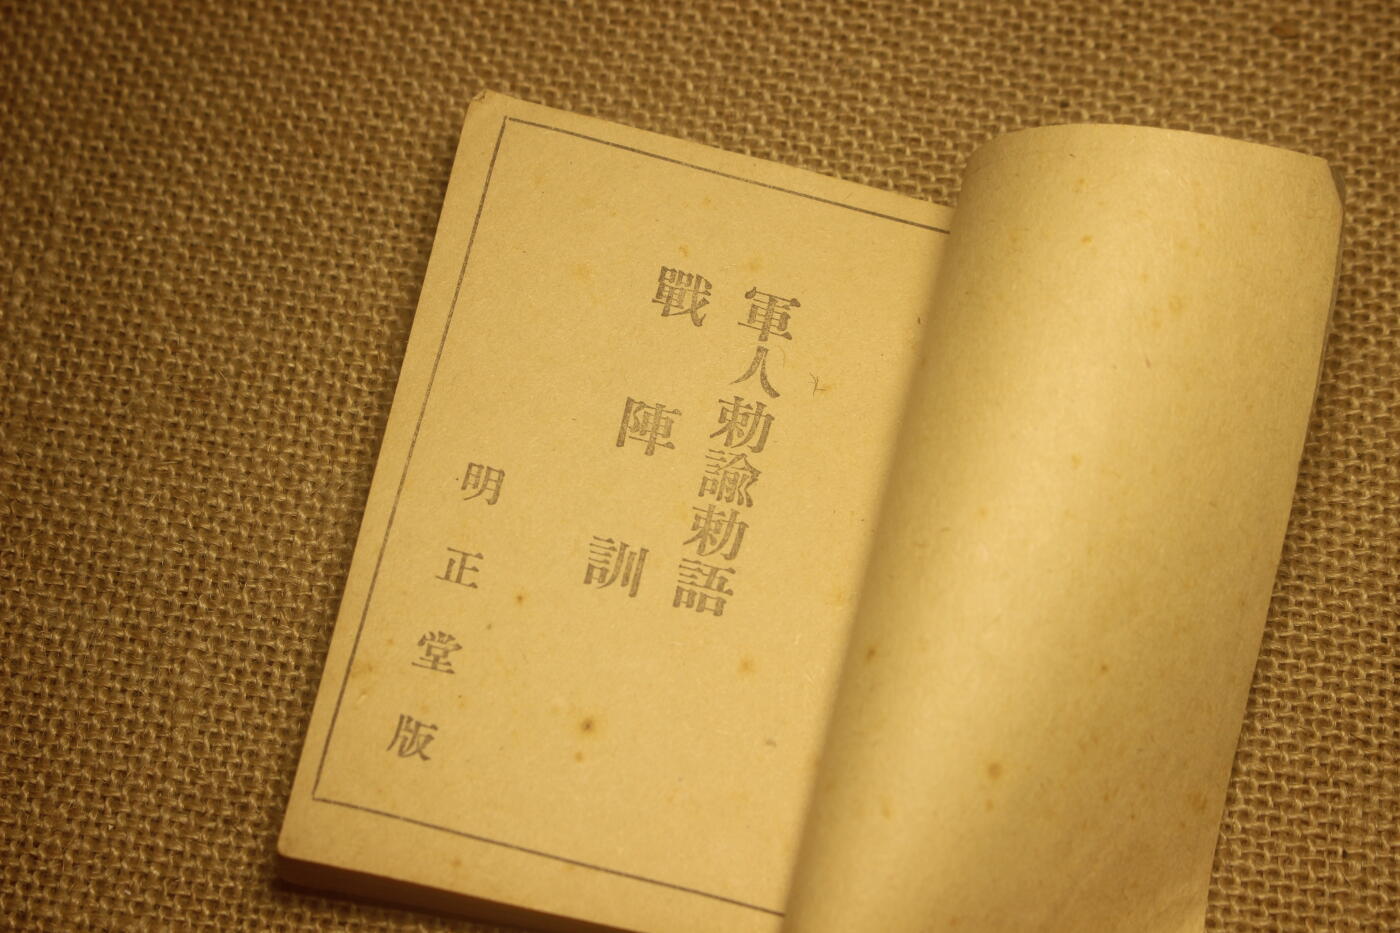 軍人勅諭勅語
戰陣訓
明正堂版